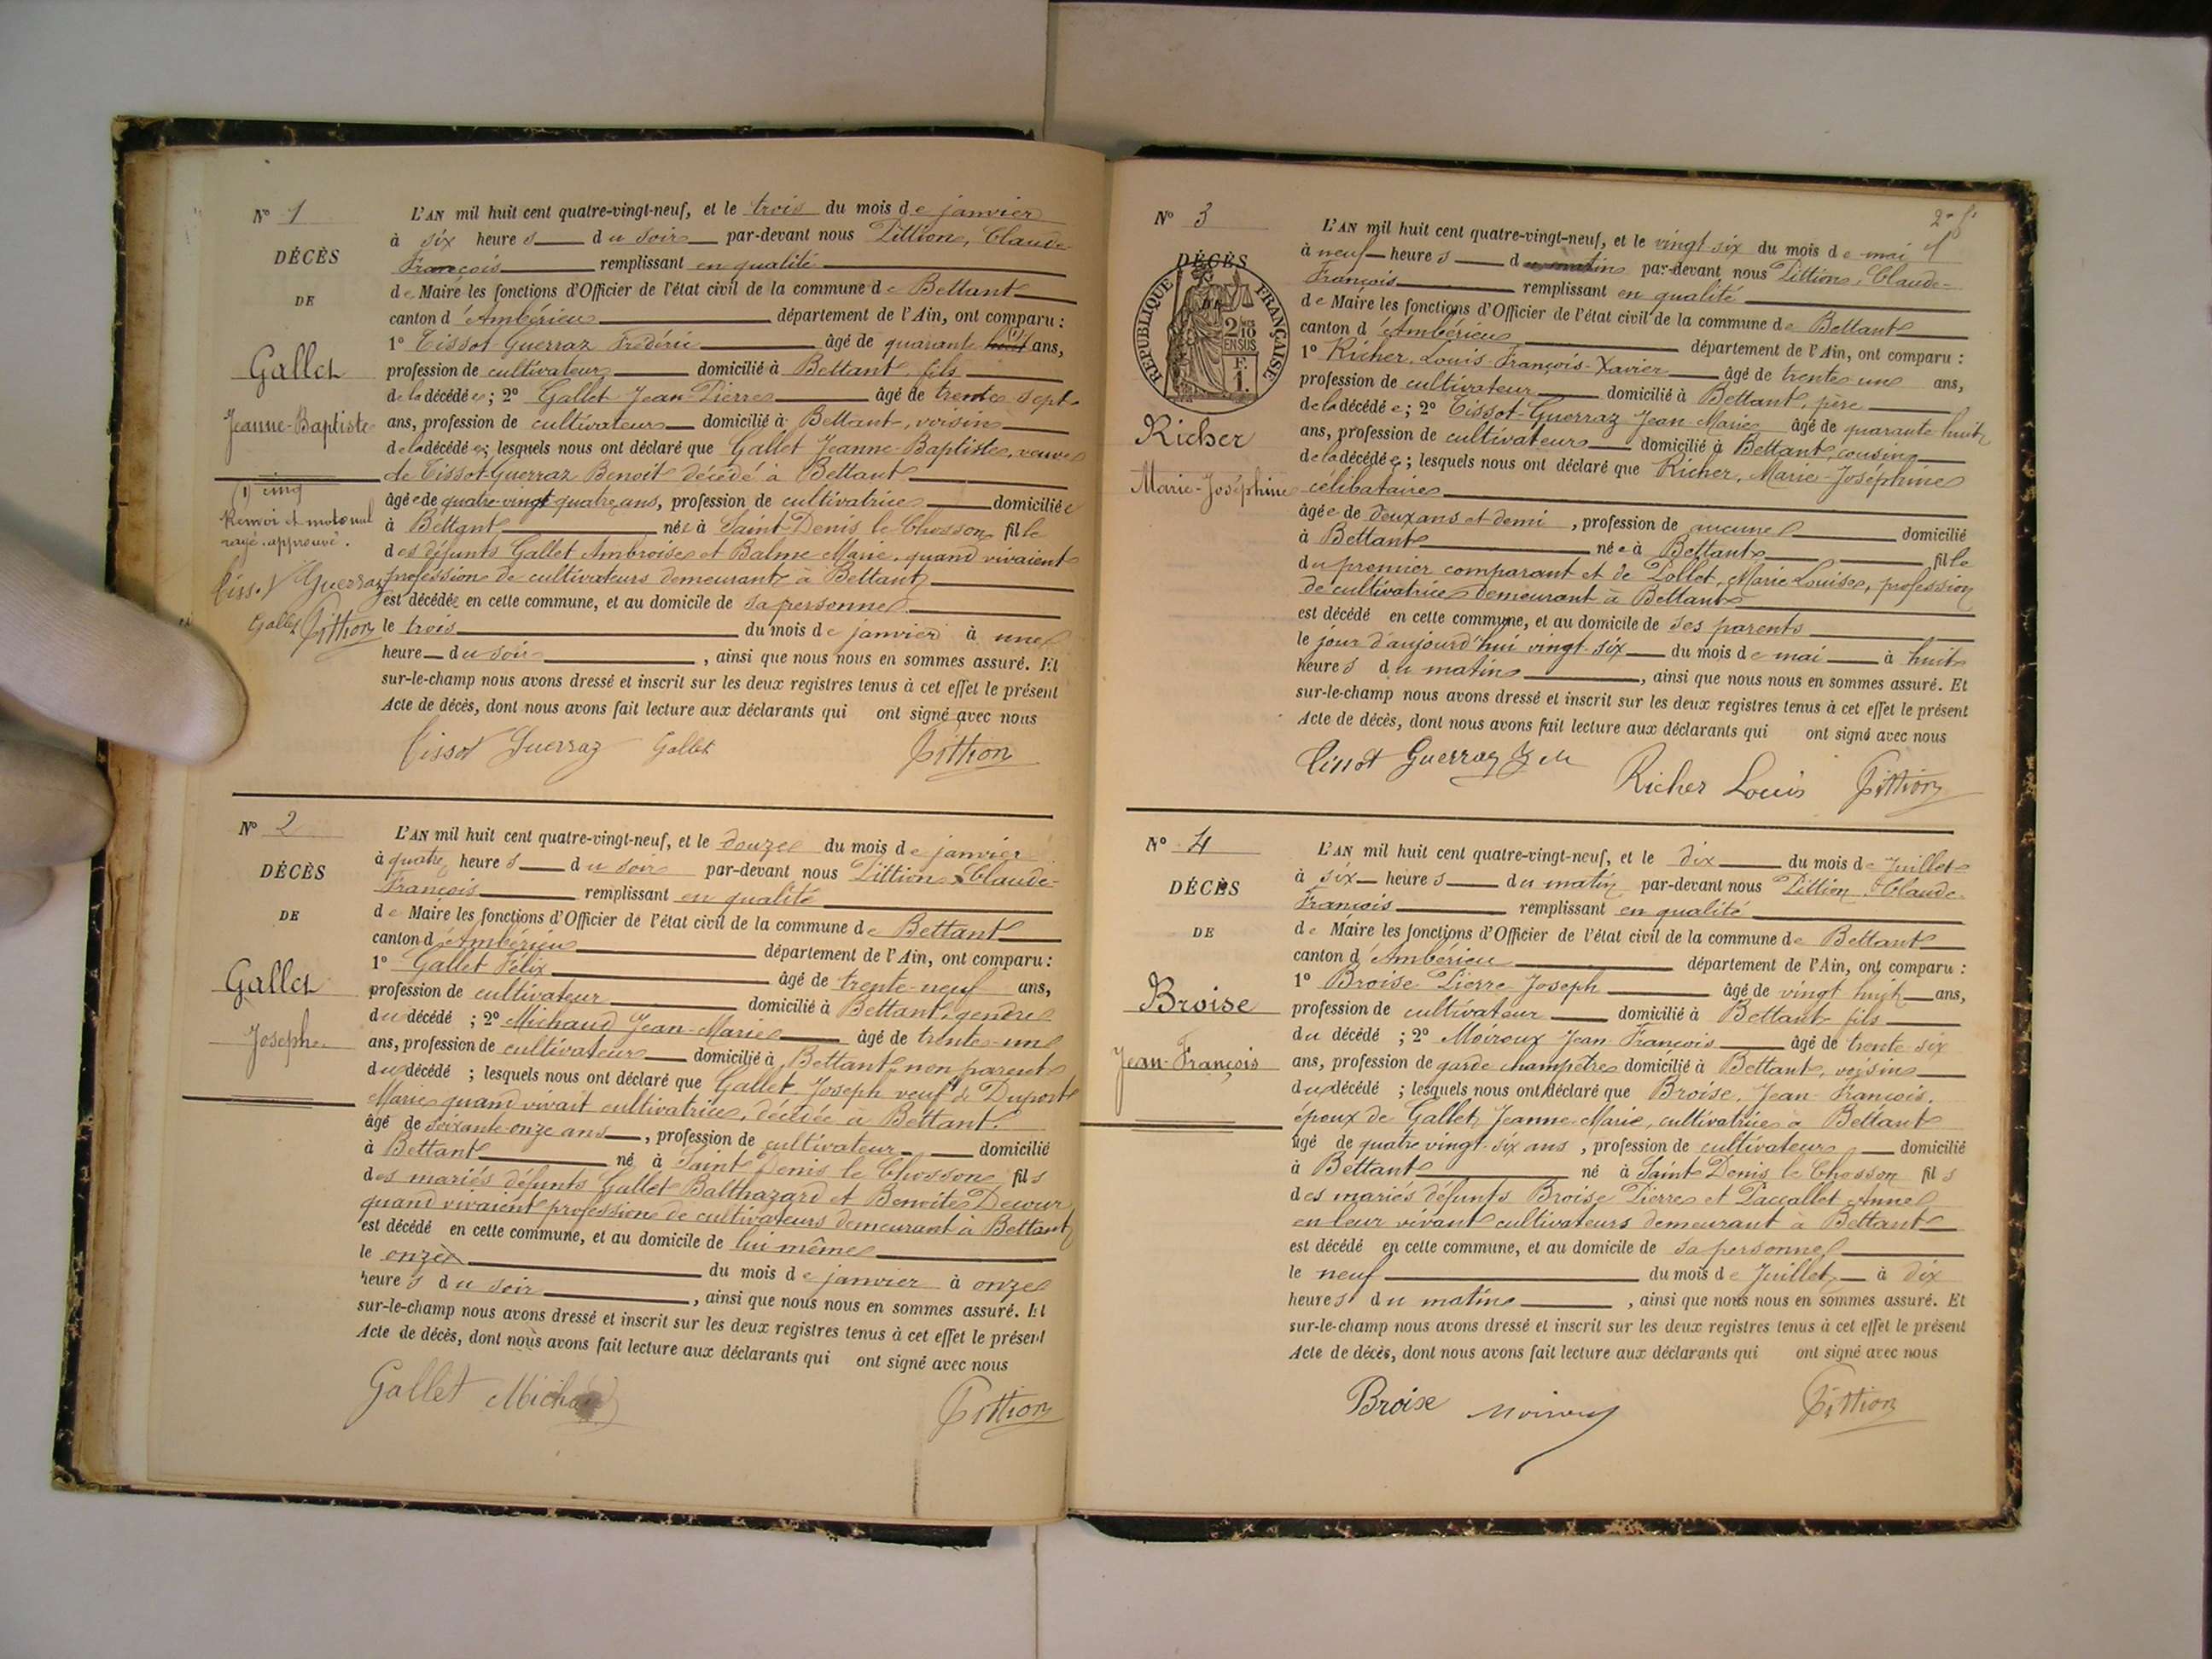 N° 1
DÉCÈS
DE
Gallet
Jeanne-Baptiste
(1) cinq
Renvoi et mot nul
rayé approuvé.
Tissot Guerraz
Gallet Pittion
L'AN mil huit cent quatre-vingt-neuf, et le trois du mois de janvier
à six heures du soir par-devant nous Pittion, Claude-
François remplissant en qualité
de Maire les fonctions d'Officier de l'état civil de la commune de Bettant
canton d'Ambérieu département de l'Ain, ont comparu :
1° Tissot-Guerraz Frédéric âgé de quarante huit ans,
profession de cultivateur domicilié à Bettant, fils
de la décédée; 2° Gallet Jean-Pierre âgé de trente sept
ans, profession de cultivateur domicilié à Bettant, voisin
de la décédée; lesquels nous ont déclaré que Gallet Jeanne Baptiste, veuve
de Tissot-Guerraz Benoît décédé à Bettant
âgée de quatre-vingt quatre ans, profession de cultivatrice domiciliée
à Bettant née à Saint-Denis le Chosson fille
des défunts Gallet Ambroise et Balme Marie, quand vivaient
profession de cultivateurs demeurant à Bettant
est décédée en cette commune, et au domicile de sa personne
le trois du mois de janvier à une
heure du soir, ainsi que nous nous en sommes assuré. Et
sur-le-champ nous avons dressé et inscrit sur les deux registres tenus à cet effet le présent
Acte de décès, dont nous avons fait lecture aux déclarants qui ont signé avec nous
Tissot Guerraz Gallet Pittion
N° 2
DÉCÈS
DE
Gallet
Joseph
L'AN mil huit cent quatre-vingt-neuf, et le douze du mois de janvier
à quatre heures du soir par-devant nous Pittion, Claude-
François remplissant en qualité
de Maire les fonctions d'Officier de l'état civil de la commune de Bettant
canton d'Ambérieu département de l'Ain, ont comparu :
1° Gallet Félix âgé de trente-neuf ans,
profession de cultivateur domicilié à Bettant, gendre
du décédé ; 2° Michaud Jean-Marie âgé de trente-un
ans, profession de cultivateur domicilié à Bettant, non parent
du décédé ; lesquels nous ont déclaré que Gallet Joseph veuf de Dupont
Marie quand vivait cultivatrice, décédée à Bettant.
âgé de soixante-onze ans, profession de cultivateur domicilié
à Bettant né à Saint Denis le Chosson fils
des mariés défunts Gallet Balthazard et Benoîte Decour
quand vivaient profession de cultivateurs demeurant à Bettant
est décédé en cette commune, et au domicile de lui même
le onze du mois de janvier à onze
heures du soir, ainsi que nous nous en sommes assuré. Et
sur-le-champ nous avons dressé et inscrit sur les deux registres tenus à cet effet le présent
Acte de décès, dont nous avons fait lecture aux déclarants qui ont signé avec nous
Gallet Michaud Pittion
N° 3
DÉCÈS
RÉPUBLIQUE FRANÇAISE
2/10 EN SUS
Richer
Marie-Joséphine
L'AN mil huit cent quatre-vingt-neuf, et le vingt-six du mois de mai
à neuf heures du matin par-devant nous Pittion, Claude-
François remplissant en qualité
de Maire les fonctions d'Officier de l'état civil de la commune de Bettant
canton d'Ambérieu département de l'Ain, ont comparu :
1° Richer Louis François-Xavier âgé de trente un ans,
profession de cultivateur domicilié à Bettant, père
de la décédée; 2° Tissot-Guerraz Jean-Marie âgé de quarante huit
ans, profession de cultivateur domicilié à Bettant, cousin
de la décédée; lesquels nous ont déclaré que Richer, Marie-Joséphine
célibataire
âgée de deux ans et demi, profession de aucune domicilié
à Bettant née à Bettant fille
du premier comparant et de Pollet, Marie Louise, profession
de cultivatrice demeurant à Bettant
est décédé en cette commune, et au domicile de ses parents
le jour d'aujourd'hui vingt-six du mois de mai à huit
heures du matin, ainsi que nous nous en sommes assuré. Et
sur-le-champ nous avons dressé et inscrit sur les deux registres tenus à cet effet le présent
Acte de décès, dont nous avons fait lecture aux déclarants qui ont signé avec nous
Tissot Guerraz J M Richer Louis Pittion
N° 4
DÉCÈS
DE
Broise
Jean-François
L'AN mil huit cent quatre-vingt-neuf, et le dix du mois de Juillet
à six heures du matin par-devant nous Pittion, Claude-
François remplissant en qualité
de Maire les fonctions d'Officier de l'état civil de la commune de Bettant
canton d'Ambérieu département de l'Ain, ont comparu :
1° Broise Pierre-Joseph âgé de vingt huit ans,
profession de cultivateur domicilié à Bettant fils
du décédé ; 2° Moiroux Jean François âgé de trente six
ans, profession de garde champêtre domicilié à Bettant, voisin
du décédé ; lesquels nous ont déclaré que Broise, Jean-François,
époux de Gallet, Jeanne-Marie, cultivatrice à Bettant
âgé de quatre vingt-six ans, profession de cultivateur domicilié
à Bettant né à Saint Denis le Chosson fils
des mariés défunts Broise Pierre et Paccallet Anne
en leur vivant cultivateurs demeurant à Bettant
est décédé en cette commune, et au domicile de sa personne
le neuf du mois de Juillet à dix
heures du matin, ainsi que nous nous en sommes assuré. Et
sur-le-champ nous avons dressé et inscrit sur les deux registres tenus à cet effet le présent
Acte de décès, dont nous avons fait lecture aux déclarants qui ont signé avec nous
Broise Moiroux Pittion